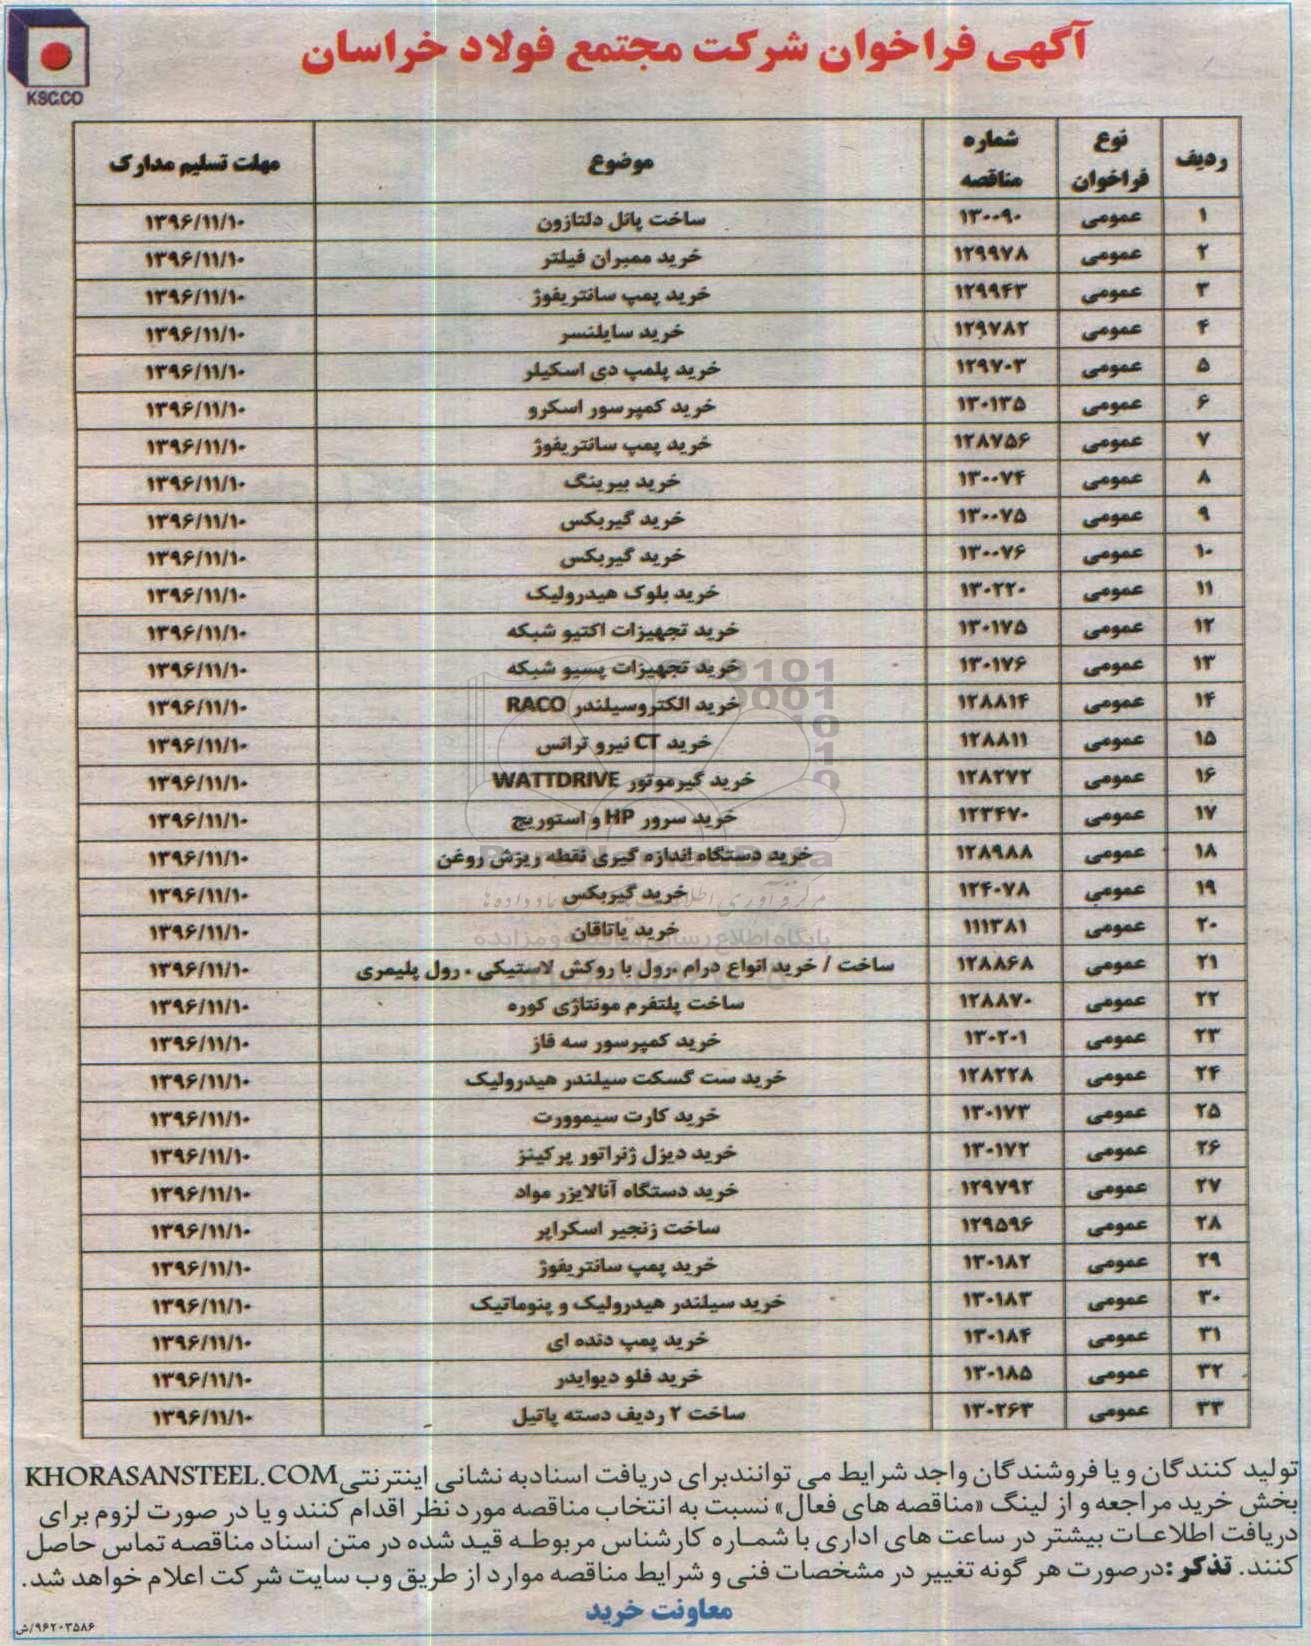 آگهی فراخوان شرکت مجتمع فولاد خراسان
KSC.CO
ردیف نوع فراخوان شماره مناقصه موضوع مهلت تسلیم مدارک
۱ عمومی ۱۳۰۰۹۰ ساخت پانل دلتازون ۱۳۹۶/۱۱/۱۰
۲ عمومی ۱۲۹۹۷۸ خرید ممبران فیلتر ۱۳۹۶/۱۱/۱۰
۳ عمومی ۱۲۹۹۴۳ خرید پمپ سانتریفوژ ۱۳۹۶/۱۱/۱۰
۴ عمومی ۱۲۹۷۸۲ خرید سایلنسر ۱۳۹۶/۱۱/۱۰
۵ عمومی ۱۲۹۷۰۳ خرید پلمپ دی اسکیلر ۱۳۹۶/۱۱/۱۰
۶ عمومی ۱۳۰۱۳۵ خرید کمپرسور اسکرو ۱۳۹۶/۱۱/۱۰
۷ عمومی ۱۲۸۷۵۶ خرید پمپ سانتریفوژ ۱۳۹۶/۱۱/۱۰
۸ عمومی ۱۳۰۰۷۴ خرید بیرینگ ۱۳۹۶/۱۱/۱۰
۹ عمومی ۱۳۰۰۷۵ خرید گیربکس ۱۳۹۶/۱۱/۱۰
۱۰ عمومی ۱۳۰۰۷۶ خرید گیربکس ۱۳۹۶/۱۱/۱۰
۱۱ عمومی ۱۳۰۲۲۰ خرید بلوک هیدرولیک ۱۳۹۶/۱۱/۱۰
۱۲ عمومی ۱۳۰۱۷۵ خرید تجهیزات اکتیو شبکه ۱۳۹۶/۱۱/۱۰
۱۳ عمومی ۱۳۰۱۷۶ خرید تجهیزات پسیو شبکه ۱۳۹۶/۱۱/۱۰
۱۴ عمومی ۱۲۸۸۱۴ خرید الکتروسیلندر RACO ۱۳۹۶/۱۱/۱۰
۱۵ عمومی ۱۲۸۸۱۱ خرید CT نیرو ترانس ۱۳۹۶/۱۱/۱۰
۱۶ عمومی ۱۲۸۲۷۲ خرید گیرموتور WATTDRIVE ۱۳۹۶/۱۱/۱۰
۱۷ عمومی ۱۲۳۴۷۰ خرید سرور HP و استوریج ۱۳۹۶/۱۱/۱۰
۱۸ عمومی ۱۲۸۹۸۸ خرید دستگاه اندازه گیری نقطه ریزش روغن ۱۳۹۶/۱۱/۱۰
۱۹ عمومی ۱۲۴۰۷۸ خرید گیربکس ۱۳۹۶/۱۱/۱۰
۲۰ عمومی ۱۱۱۳۸۱ خرید یاتاقان ۱۳۹۶/۱۱/۱۰
۲۱ عمومی ۱۲۸۸۶۸ ساخت / خرید انواع درام ،رول با روکش لاستیکی ، رول پلیمری ۱۳۹۶/۱۱/۱۰
۲۲ عمومی ۱۲۸۸۷۰ ساخت پلتفرم مونتاژی کوره ۱۳۹۶/۱۱/۱۰
۲۳ عمومی ۱۳۰۲۰۱ خرید کمپرسور سه فاز ۱۳۹۶/۱۱/۱۰
۲۴ عمومی ۱۲۸۲۲۸ خرید ست گسکت سیلندر هیدرولیک ۱۳۹۶/۱۱/۱۰
۲۵ عمومی ۱۳۰۱۷۳ خرید کارت سیموورت ۱۳۹۶/۱۱/۱۰
۲۶ عمومی ۱۳۰۱۷۲ خرید دیزل ژنراتور پرکینز ۱۳۹۶/۱۱/۱۰
۲۷ عمومی ۱۲۹۷۹۲ خرید دستگاه آنالایزر مواد ۱۳۹۶/۱۱/۱۰
۲۸ عمومی ۱۲۹۵۹۶ ساخت زنجیر اسکراپر ۱۳۹۶/۱۱/۱۰
۲۹ عمومی ۱۳۰۱۸۲ خرید پمپ سانتریفوژ ۱۳۹۶/۱۱/۱۰
۳۰ عمومی ۱۳۰۱۸۳ خرید سیلندر هیدرولیک و پنوماتیک ۱۳۹۶/۱۱/۱۰
۳۱ عمومی ۱۳۰۱۸۴ خرید پمپ دنده ای ۱۳۹۶/۱۱/۱۰
۳۲ عمومی ۱۳۰۱۸۵ خرید فلو دیوایدر ۱۳۹۶/۱۱/۱۰
۳۳ عمومی ۱۳۰۲۶۳ ساخت ۲ ردیف دسته پاتیل ۱۳۹۶/۱۱/۱۰
تولید کنندگان و یا فروشندگان واجد شرایط می توانندبرای دریافت اسنادبه نشانی اینترنتیKHORASANSTEEL.COM
بخش خرید مراجعه و از لینک «مناقصه های فعال» نسبت به انتخاب مناقصه مورد نظر اقدام کنند و یا در صورت لزوم برای
دریافت اطلاعات بیشتر در ساعت های اداری با شماره کارشناس مربوطه قید شده در متن اسناد مناقصه تماس حاصل
کنند. تذکر :درصورت هر گونه تغییر در مشخصات فنی و شرایط مناقصه موارد از طریق وب سایت شرکت اعلام خواهد شد.
معاونت خرید
۹۶۲۰۳۵۸۶/ش